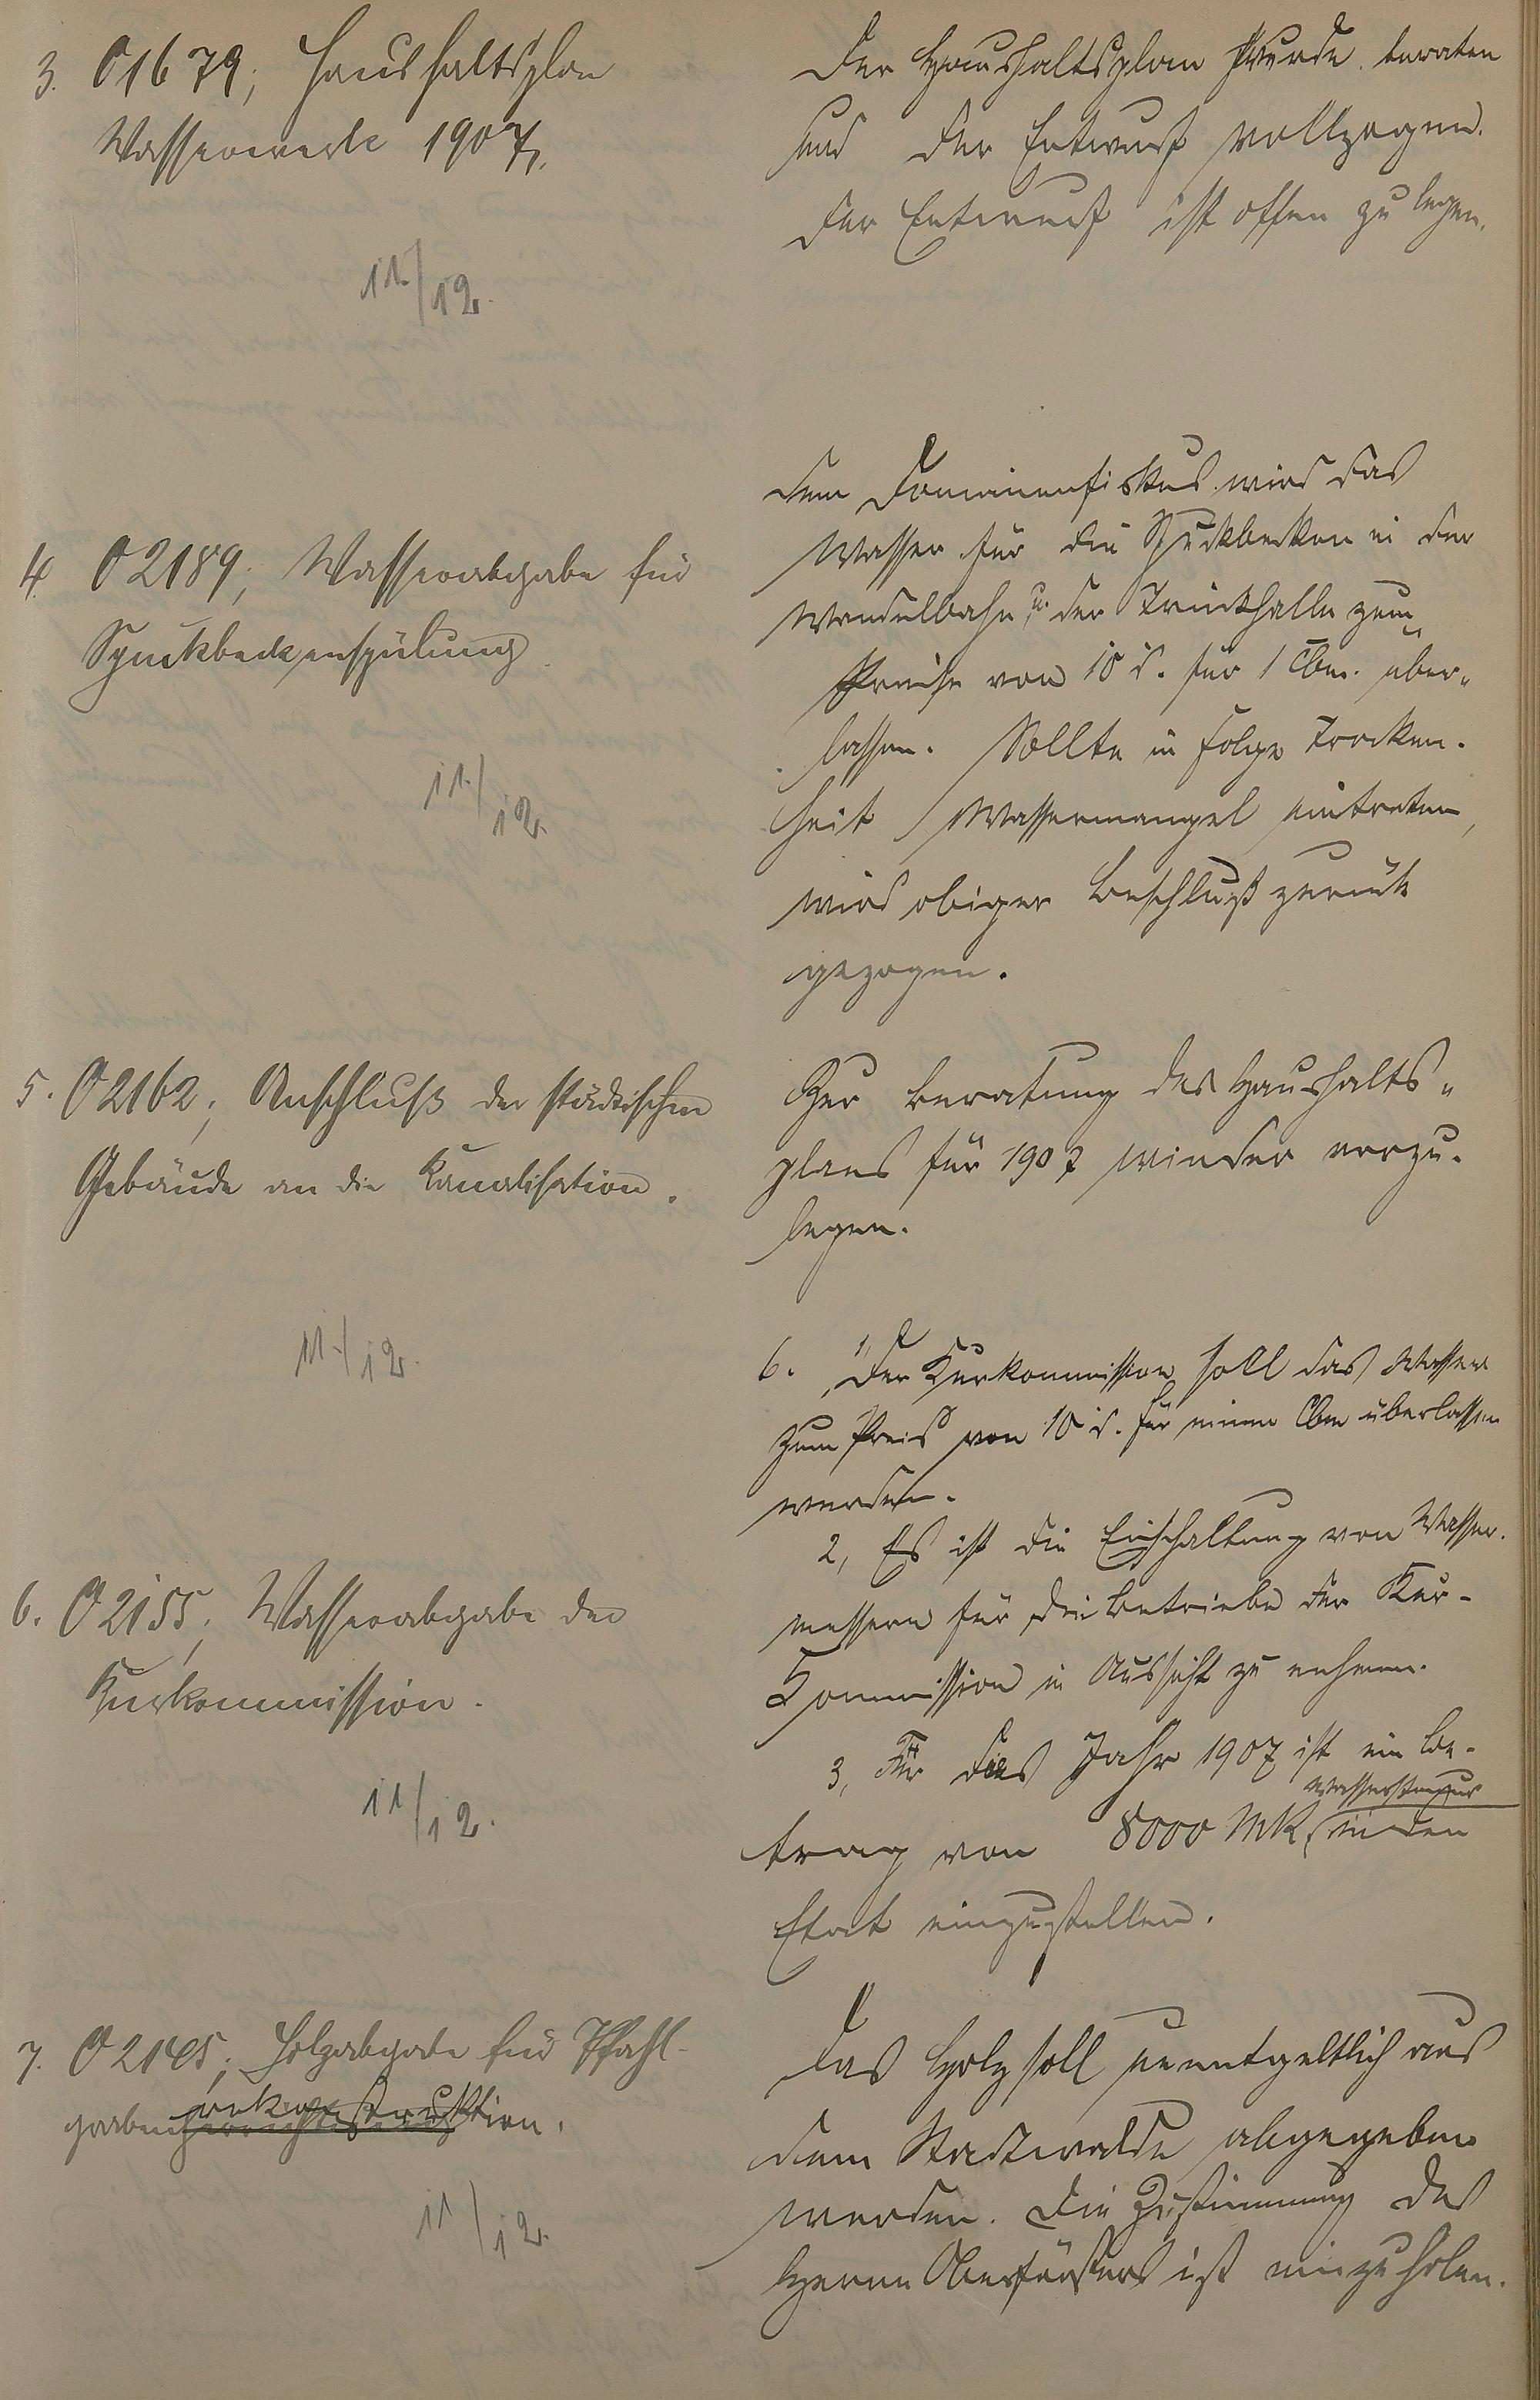 3. O 1679, Haushaltsplan
Wasserwerk 1907.
11./12.
Der Haushaltsplan wurde beraten
und der Entwurf vollzogen.
Der Entwurf ist offen zu legen.
4. O 2189, Wasserabgabe für
Spuckbeckenspülung
11./12.
Dem Domänenfiskus wird das
Wasser für die Spuckbecken in der
Wandelbahn u. der Trinkhalle zum
Preise von 10 d. für 1 cbm. über„
lassen. Sollte in Folge Trocken-
heit Wassermangel eintreten,
wird obiger Beschluß zurück
gezogen.
5. O 2162, Anschluß der städtischen
Gebäude an die Kanalisation.
11./12.
Zur Beratung des Haushalts„
plans für 1907 wieder vorzu-
legen.
6. O 2155, Wasserabgabe der
Kurkommission.
11/12.
6. 1, Der Kurkommission soll das Wasser
zum Preis von 10 d. für einen Cbm überlassen
werden.
2, Es ist die Einschaltung von Wasser-
messern für die Betriebe der Kur-
Kommission in Aussicht zu nehmen.
3, Für das Jahr 1907 ist ein Be-
trag von 8000 MK, in den
Etat einzustellen.
7. O 2145, Holzabgabe für Pfahl-
grabenrekonstruktion.
11/12.
Das Holz soll unentgeltlich aus
dem Stadtwalde abgegeben
werden. Die Zustimmung des
Herrn Oberförsters ist einzuholen.